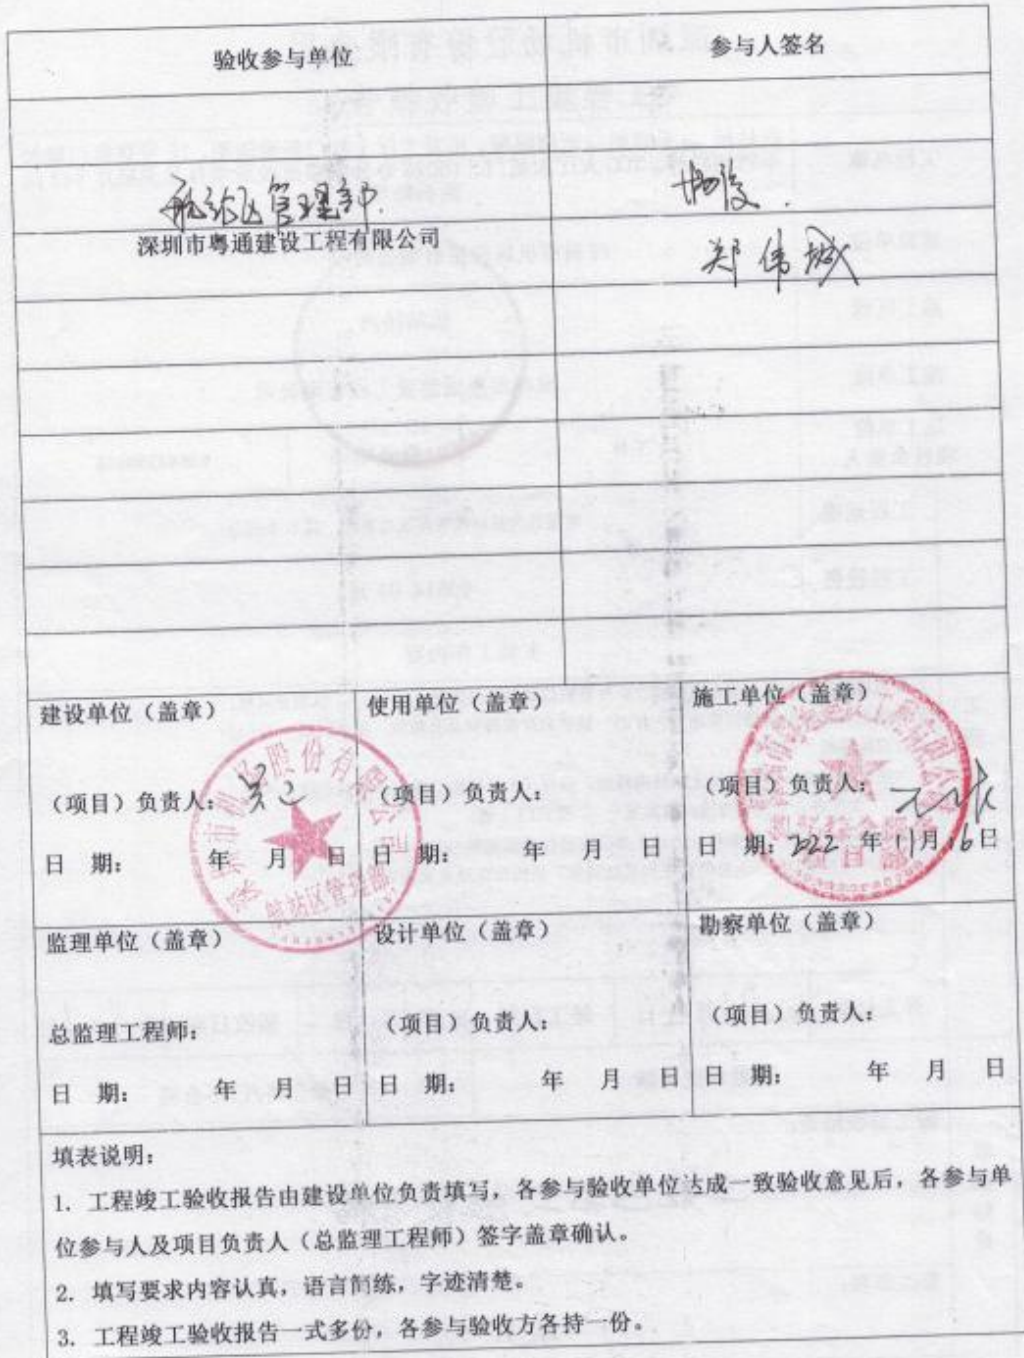 验收参与单位 参与人签名
航站区管理部
深圳市粤通建设工程有限公司 郑伟城
建设单位（盖章） 使用单位（盖章） 施工单位（盖章）
（项目）负责人： （项目）负责人： （项目）负责人：
日 期： 年 月 日 日 期： 年 月 日 日 期：2022 年 11月16日
深圳市机场股份有限公司
航站区管理部
监理单位（盖章） 设计单位（盖章） 勘察单位（盖章）
总监理工程师： （项目）负责人： （项目）负责人：
日 期： 年 月 日 日 期： 年 月 日 日 期： 年 月 日
填表说明：
1. 工程竣工验收报告由建设单位负责填写，各参与验收单位达成一致验收意见后，各参与单
位参与人及项目负责人（总监理工程师）签字盖章确认。
2. 填写要求内容认真，语言简练，字迹清楚。
3. 工程竣工验收报告一式多份，各参与验收方各持一份。